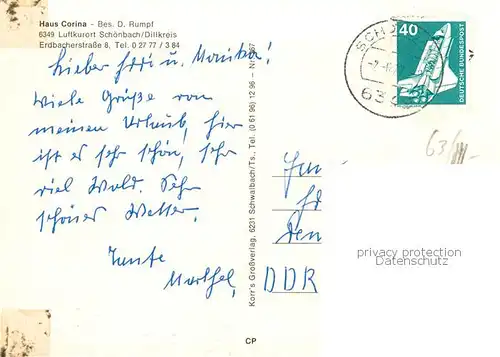 Haus Corina - Bes. D. Rumpf
6349 Luftkurort Schönbach/Dillkreis
Erdbacherstraße 8, Tel. 0 27 77 / 3 84
Lieber u. Monika!
Viele Grüße von
meinem Urlaub, hier
ist es sehr schön, sehr
viel Wald. Sehr
schönes Wetter.
Tante
Marthel,
Korr's Großverlag, 6231 Schwalbach/Ts., Tel. (0 61 96) 12 96 - Nr.
CP
40
DEUTSCHE BUNDESPOST
DDR
63
privacy protection
Datenschutz